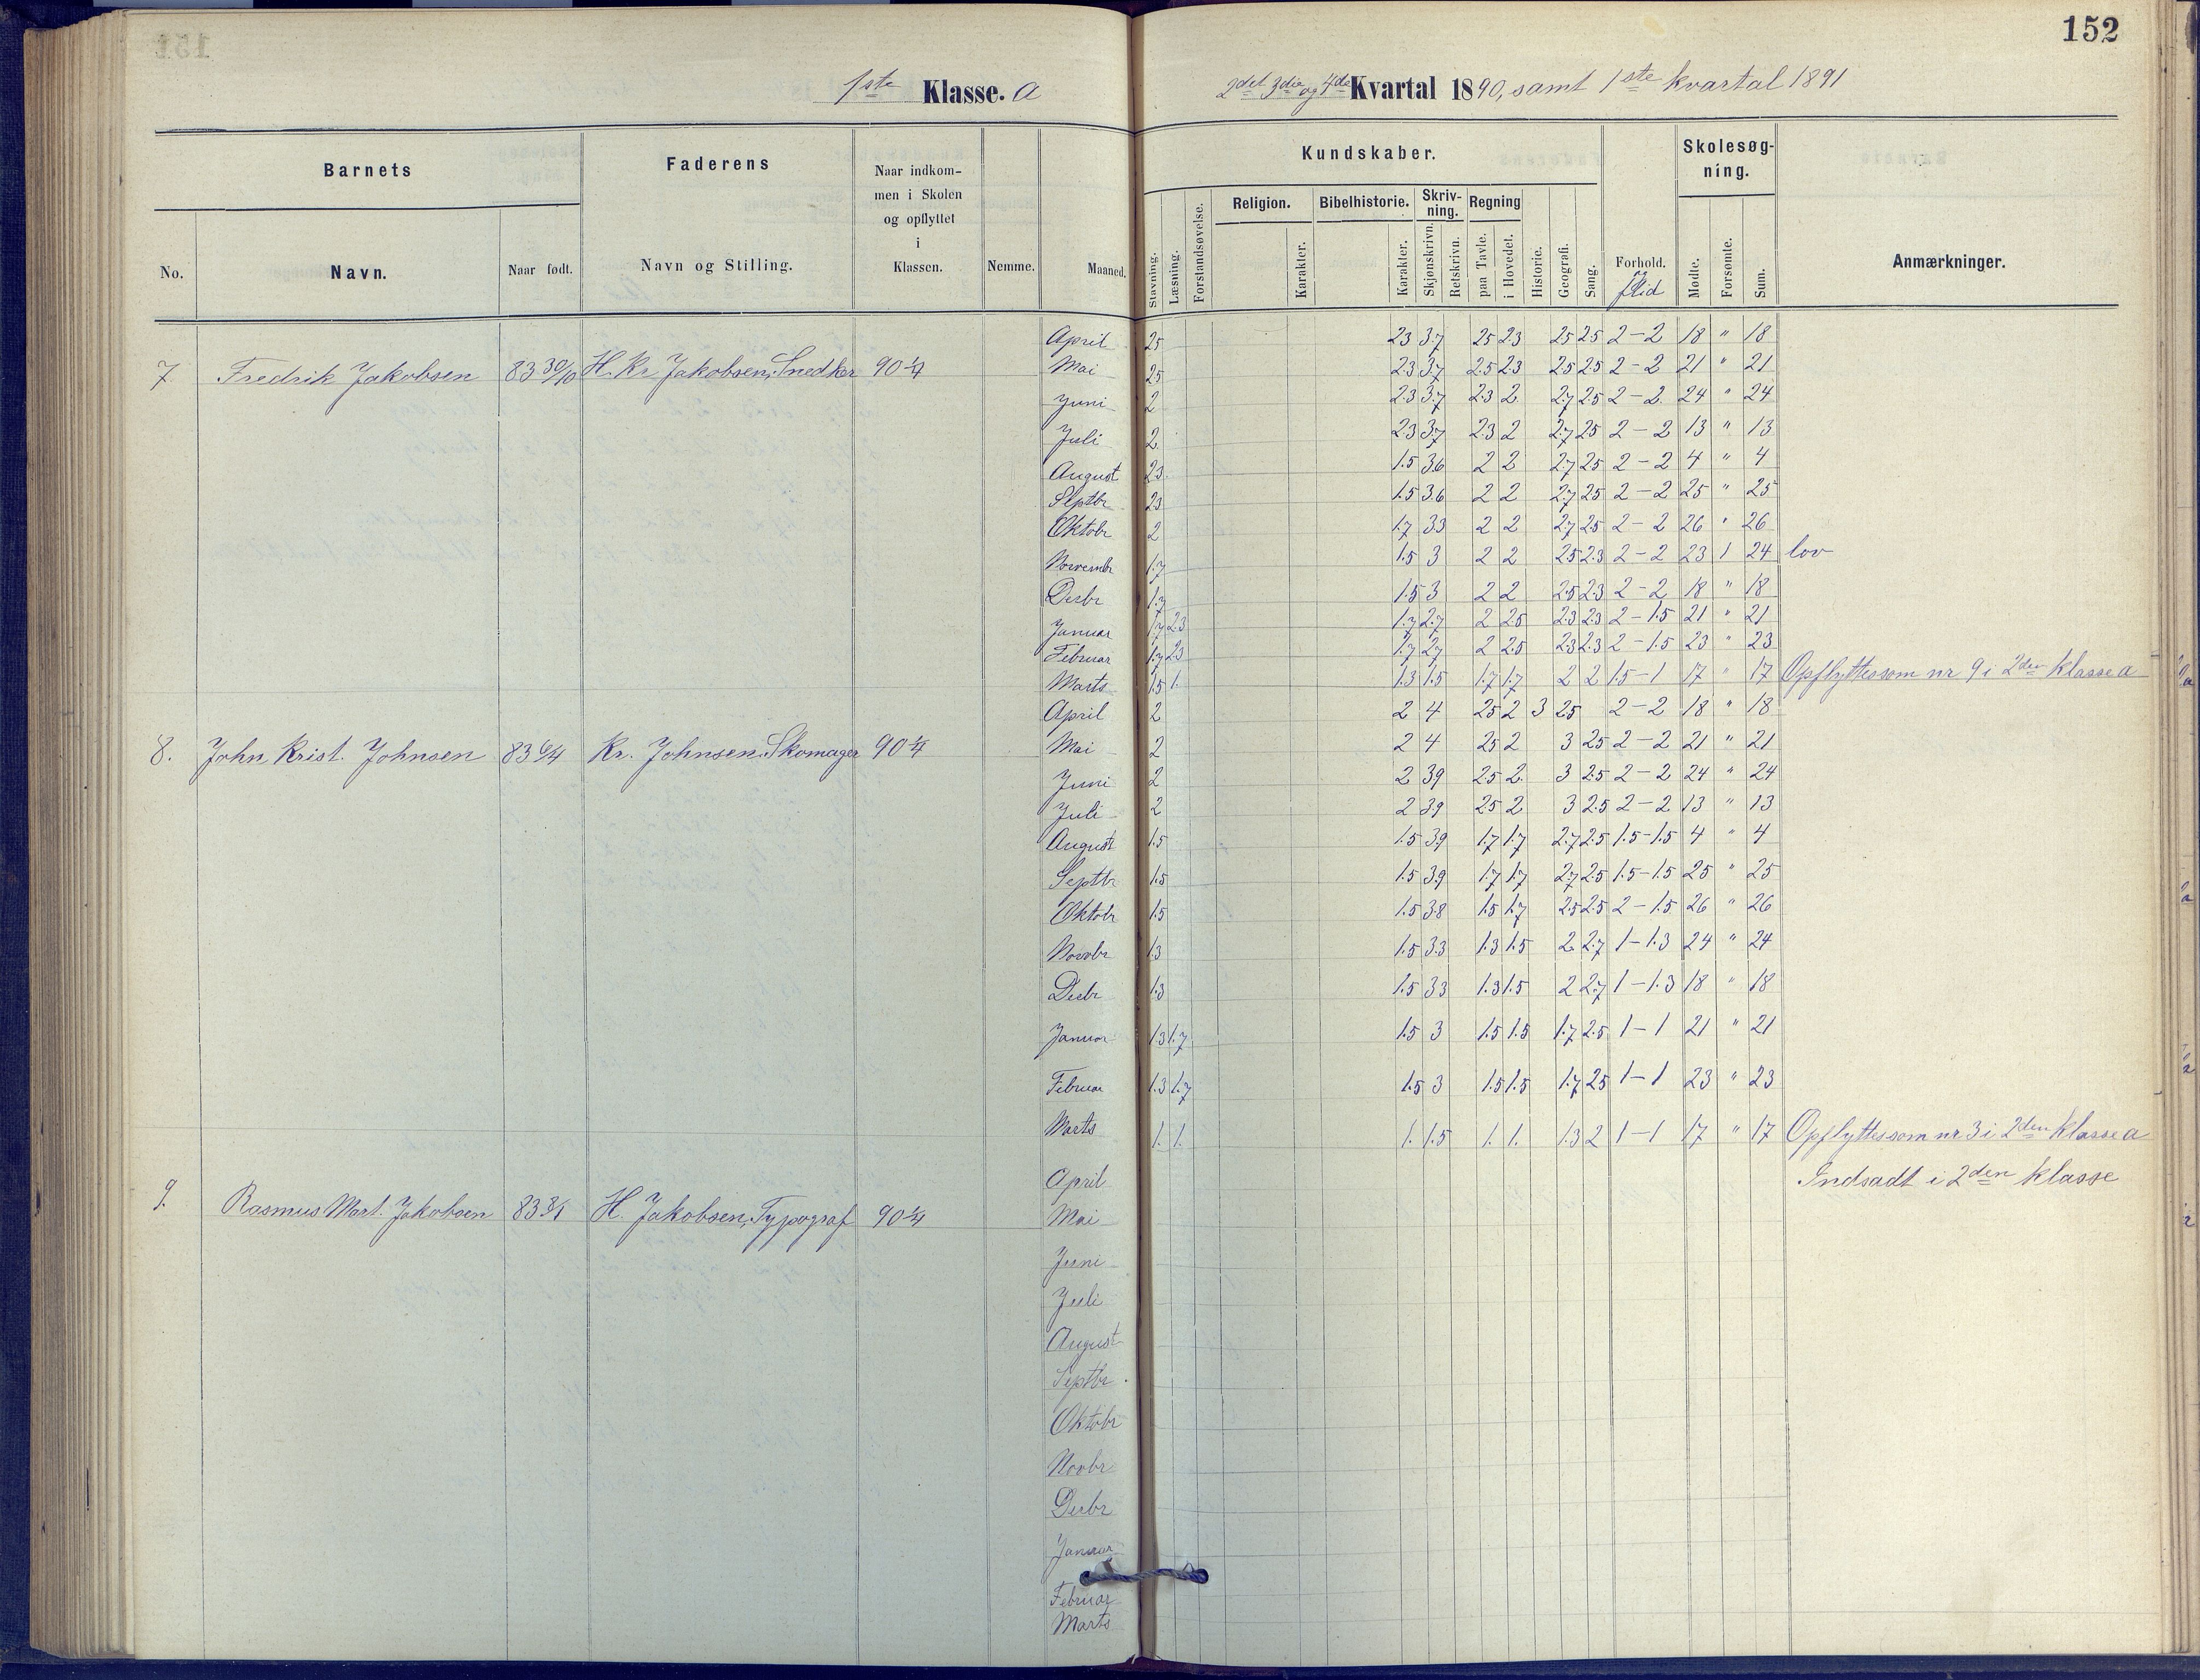 152
1ste Klasse. a
2det 3die og 4de Kvartal 1890, samt 1ste kvartal 1891
Barnets Faderens Naar indkommen i Skolen og opflyttet i Klassen. Nemme. Maaned. Kundskaber. Forhold. og flid Skolesøgning. Anmærkninger.
No. Navn. Naar født. Navn og Stilling. Stavning. Læsning. Forstandsøvelse. Religion. Karakter. Bibelhistorie. Karakter. Skrivning. Skjønskrivn. Retskrivn. Regning paa Tavle. i Hovedet. Historie. Geografi. Sang. Mødte. Forsømte. Sum.
April 25 23 3.7 25 23 25 25 2-2 18 " 18
7 Fredrik Jakobsen 83 30/10 H. Kr. Jakobsen, Snedker 90 1/4 Mai 25 2.3 3.7 2.5 2.3 25 25 2-2 21 " 21
Juni 2 2.3 3.7 2.3 2 2.7 2.5 2-2 24 " 24
Juli 2 23 3.7 2.3 2 2.7 25 2-2 13 " 13
August 23 1.5 3.6 2 2 2.7 25 2-2 4 " 4
Septbr 23 1.5 3.6 2 2 2.7 25 2-2 25 " 25
Oktobr 2 1.7 33 2 2 2.7 25 2-2 26 " 26
Novembr 1.7 1.5 3 2 2 25 2.3 2-2 23 1 24 lov
Desbr 1.7 1.5 3 2 2 2.5 2.3 2-2 18 " 18
Januar 1.7 2.3 1.7 2.7 2 2.5 2.3 2.3 2-1.5 21 " 21
Februar 1.7 23 1.7 2.7 2 2.5 23 2.3 2-1.5 23 " 23
Marts 1.5 1. 1.3 1.5 1.7 1.7 2 2 1.5-1 17 " 17 Opflyttes som nr 9 i 2den klasse a
April 2 2 4 25 2 3 25 2-2 18 " 18
8. John Krist. Johnsen 83 6/4 Kr. Johnsen. Skomager 90 1/4 Mai 2 2 4 25 2 3 25 2-2 21 " 21
Juni 2 2 39 2.5 2. 3 2.5 2-2 24 " 24
Juli 2 2 3.9 25 2 3 2.5 2-2 13 " 13
August 1.5 1.5 3.9 1.7 1.7 2.7 2.5 1.5-1.5 4 " 4
Septbr 1.5 1.5 3.9 1.7 1.7 2.7 2.5 1.5-1.5 25 " 25
Oktobr 1.5 1.5 3.8 1.5 1.7 2.5 2.5 2-1.5 26 " 26
Novbr 1.3 1.5 3.3 1.3 1.5 2 2.7 1-1.3 24 " 24
Desbr 1.3 1.5 33 1.3 1.5 2 2.7 1-1.3 18 " 18
Januar 1.3 1.7 1.5 3 1.5 1.5 1.7 2.5 1-1 21 " 21
Februar 1.3 1.7 1.5 3 1.5 1.5 1.7 25 1-1 23 " 23
Marts 1. 1. 1. 1.5 1. 1. 1.3 2 1-1 17 " 17 Opflyttes som nr 3 i 2den klasse a
April Indsadt i 2den klasse
9. Rasmus Mart. Jakobsen 83 H. Jakobsen, Typograf 90 1/4 Mai
Juni
Juli
August
Septbr.
Oktobr
Novbr
Desbr
Januar
Februar
Marts